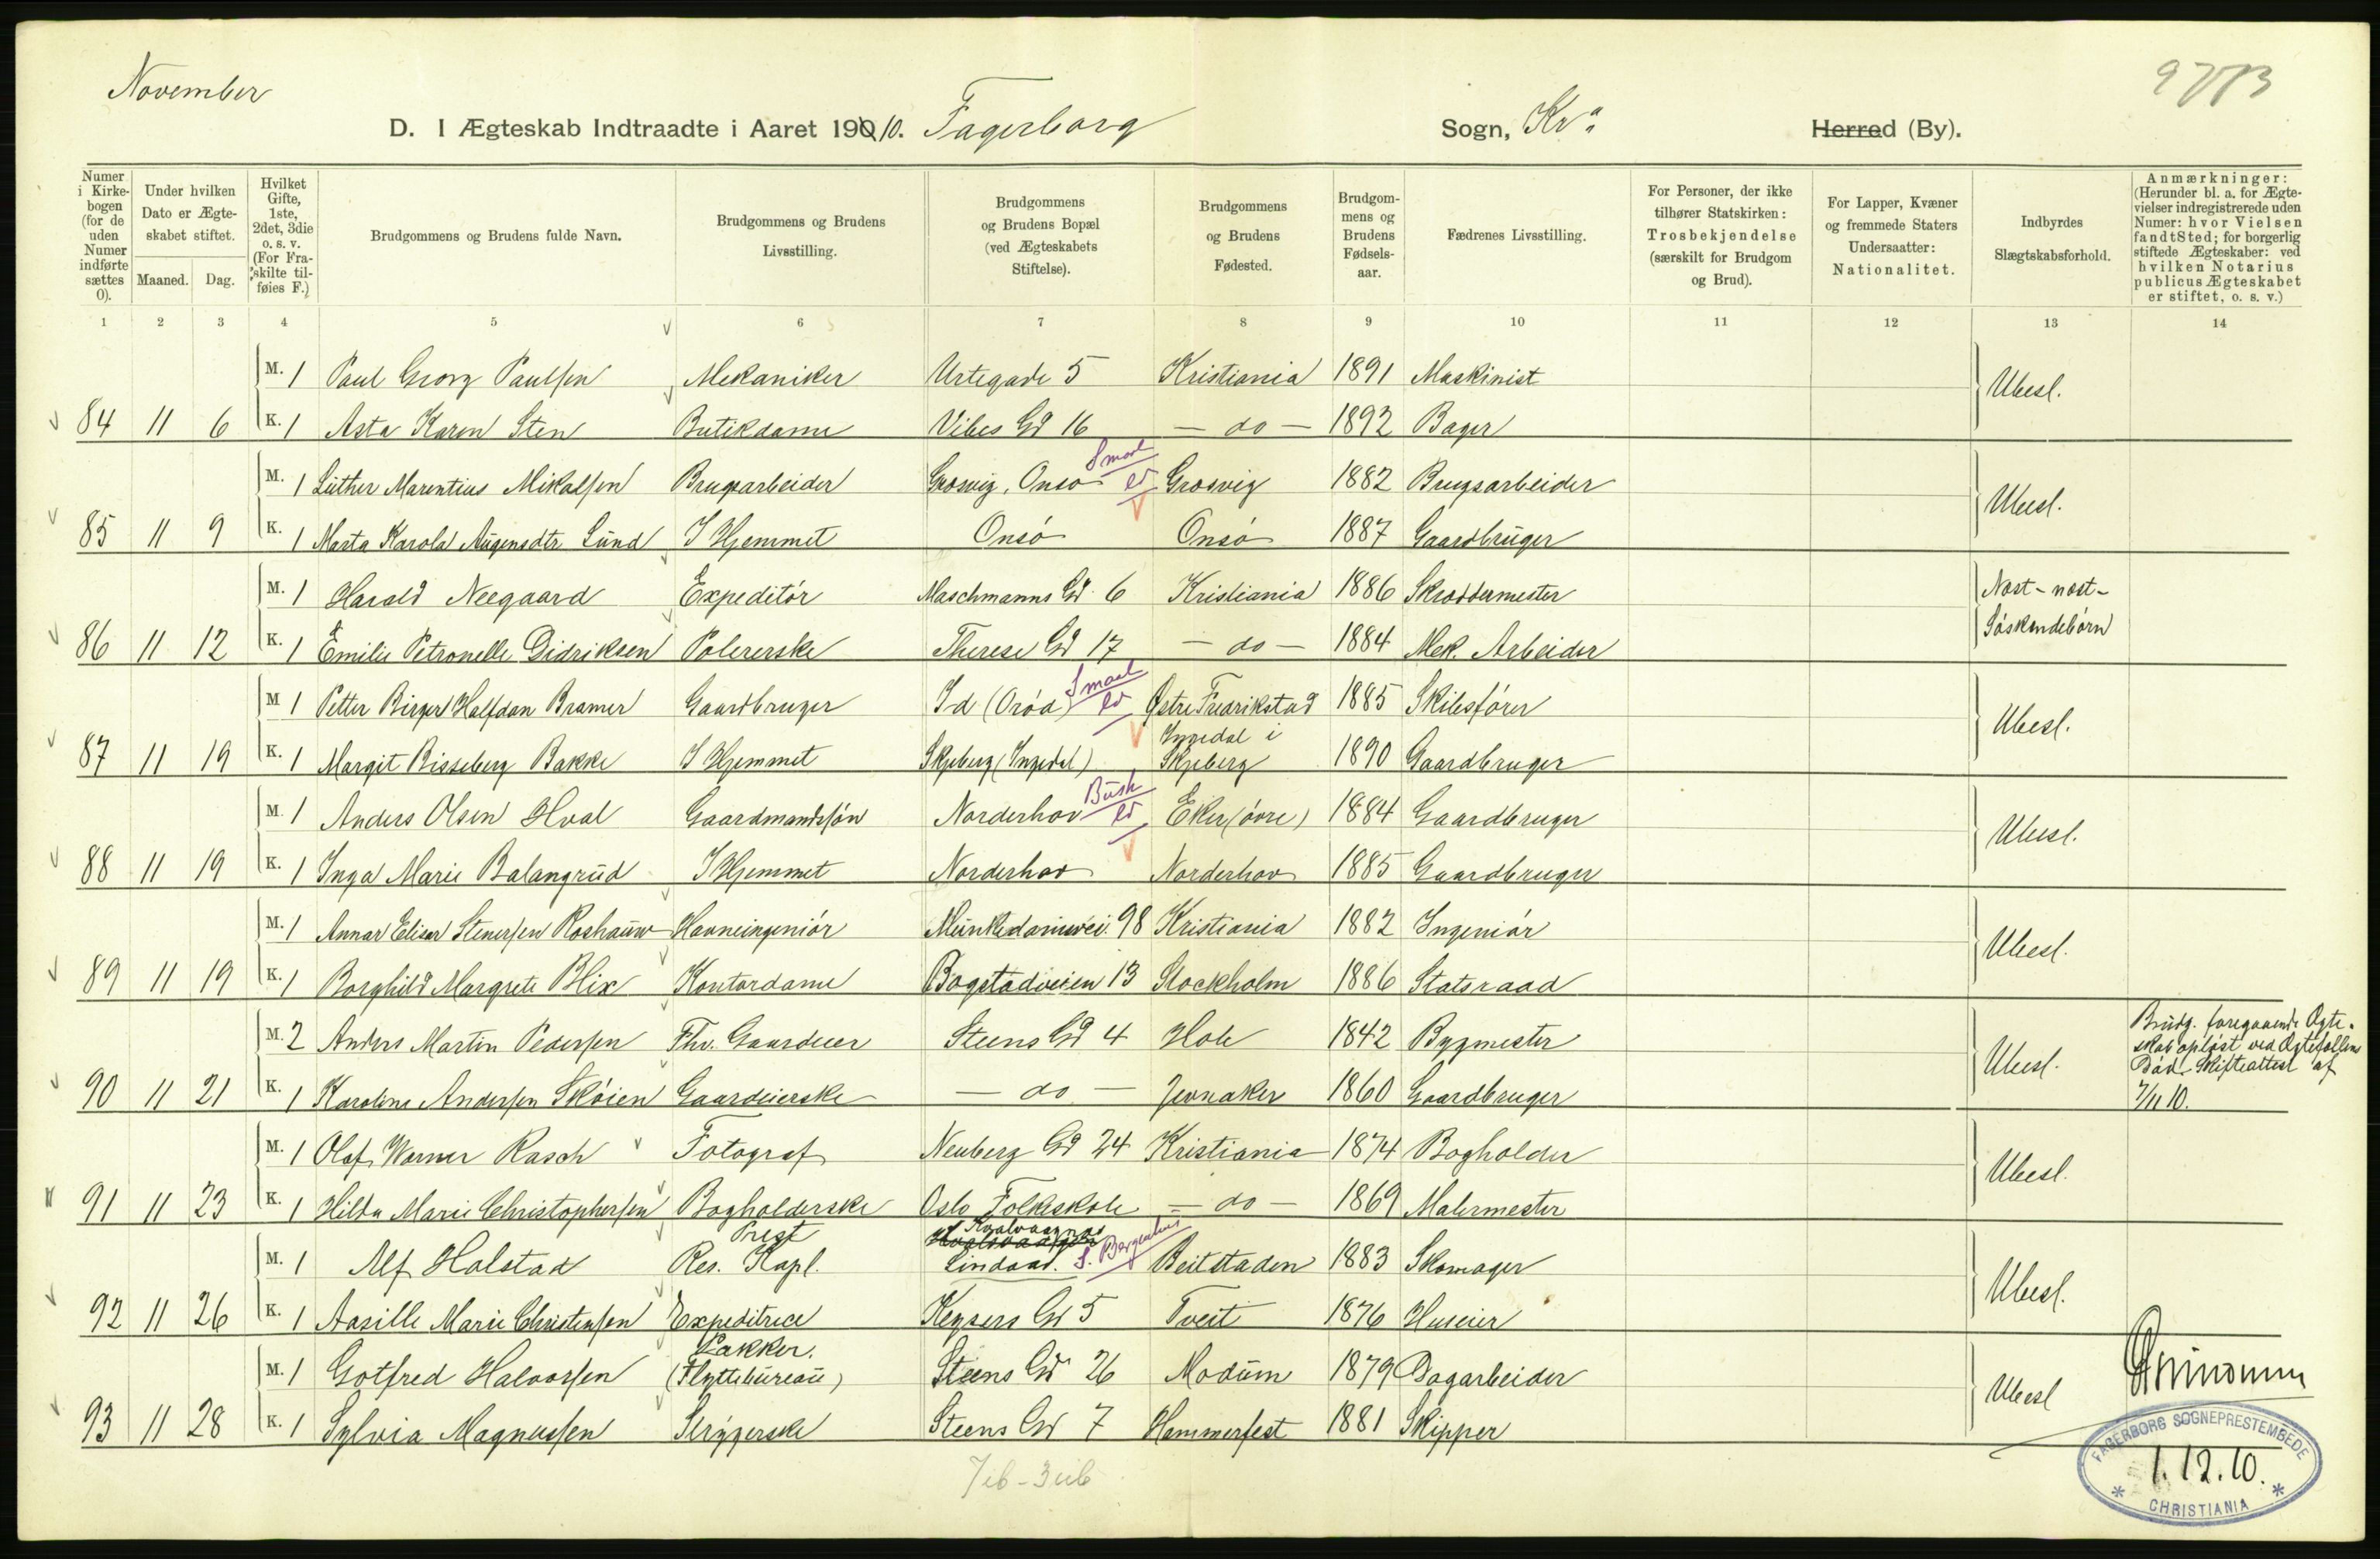 November
D. I Ægteskab Indtraadte i Aaret 190 10. Fagerborg Sogn, Kra Herred (By).
Numer i Kirkebogen (for de uden Numer indførte sættes 0).
Under hvilken Dato er Ægteskabet stiftet.
Maaned. Dag.
Hvilket Gifte, 1ste, 2det, 3die o. s. v. (For Fraskilte tilføies F.)
Brudgommens og Brudens fulde Navn.
Brudgommens og Brudens Livsstilling.
Brudgommens og Brudens Bopæl (ved Ægteskabets Stiftelse).
Brudgommens og Brudens Fødested.
Brudgommens og Brudens Fødselsaar.
Fædrenes Livsstilling.
For Personer, der ikke tilhører Statskirken: Trosbekjendelse (særskilt for Brudgom og Brud).
For Lapper, Kvæner og fremmede Staters Undersaatter: Nationalitet.
Indbyrdes Slægtskabsforhold.
Anmærkninger: (Herunder bl. a. for Ægtevielser indregistrerede uden Numer: hvor Vielsen fandt Sted; for borgerlig stiftede Ægteskaber: ved hvilken Notarius publicus Ægteskabet er stiftet, o. s. v.)
1 2 3 4 5 6 7 8 9 10 11 12 13 14
M. 1 Paul Georg Paulsen Mekaniker Urtegade 5 Kristiania 1891 Maskinist Ubesl.
84 11 6 K. 1 Asta Karen Sten Butikdame Vibes Gd 16 — do — 1892 Bager
Smaal
M. 1 Luther Marentius Mikalsen Brugsarbeider Grosvig, Onsø Grosvig 1882 Brugsarbeider Ubesl.
85 11 9 K. 1 Marta Karola Augensdtr Lund I Hjemmet Onsø Onsø 1887 Gaardbruger
M. 1 Harald Neegaard Expeditør Maschmanns Gd. 6 Kristiania 1886 Skræddermester Næst-næst-
86 11 12 K. 1 Emilie Petronelle Didriksen Polererske Therese Gd 17 — do — 1884 Mek. Arbeider Søskendebørn
Smaal
M 1 Petter Birger Halfdan Bramer Gaardbruger Id (Orød) Østre Fredrikstad 1885 Skibsfører Ubesl.
87 11 19 K. 1 Margit Bisseberg Bakke I Hjemmet Skjeberg (Ingedal) Ingedal i Skjeberg 1890 Gaardbruger
Busk
M. 1 Anders Olsen Hval Gaardmandssøn Norderhov Eker (øvre) 1884 Gaardbruger Ubesl.
88 11 19 K. 1 Inga Marie Balangrud I Hjemmet Norderhov Norderhov 1885 Gaardbruger
M. 1 Annar Elisar Stenersen Roshauw Havneingeniør Munkedamsvei 98 Kristiania 1882 Ingeniør Ubesl.
89 11 19 K. 1 Borghild Margrete Blix Kontordame Bogstadveien 13 Stockholm 1886 Statsraad
M. 2 Anders Martin Pedersen Fhv. Gaardeier Steens Gd 4 Hole 1842 Bygmester Ubesl. Brudg. foregaaende Ægte-
skab opløst ved Ægtefællens
90 11 21 K. 1 Karoline Andersen Skøien Gaardeierske — do — Jevnaker 1860 Gaardbruger Død. Skifteattest af
7/11 10.
M. 1 Olaf Werner Rasch Fotograf Neuberg Gd 24 Kristiania 1874 Bogholder Ubesl.
91 11 23 K. 1 Hilda Marie Christophersen Bogholderske Oslo Folkeskole — do — 1869 Malermester
Prest Kvalvaagnes
M. 1 Alf Halstad Res. Kapl. Lindaas. S. Bergenhus Beitstaden 1883 Skomager Ubesl.
92 11 26 K. 1 Aasille Marie Christensen Expeditrice Keysers Gd 5 Tveit 1876 Huseier
Pakker.
M. 1 Gotfred Halvorsen (Flyttebureau) Steens Gd 26 Modum 1879 Dagarbeider Ubesl
93 11 28 K. 1 Sylvia Magnussen Strygerske Steens Gd 7 Hammerfest 1881 Skipper
FAGERBORG SOGNEPRESTEMBEDE
1.12.10.
* CHRISTIANIA *